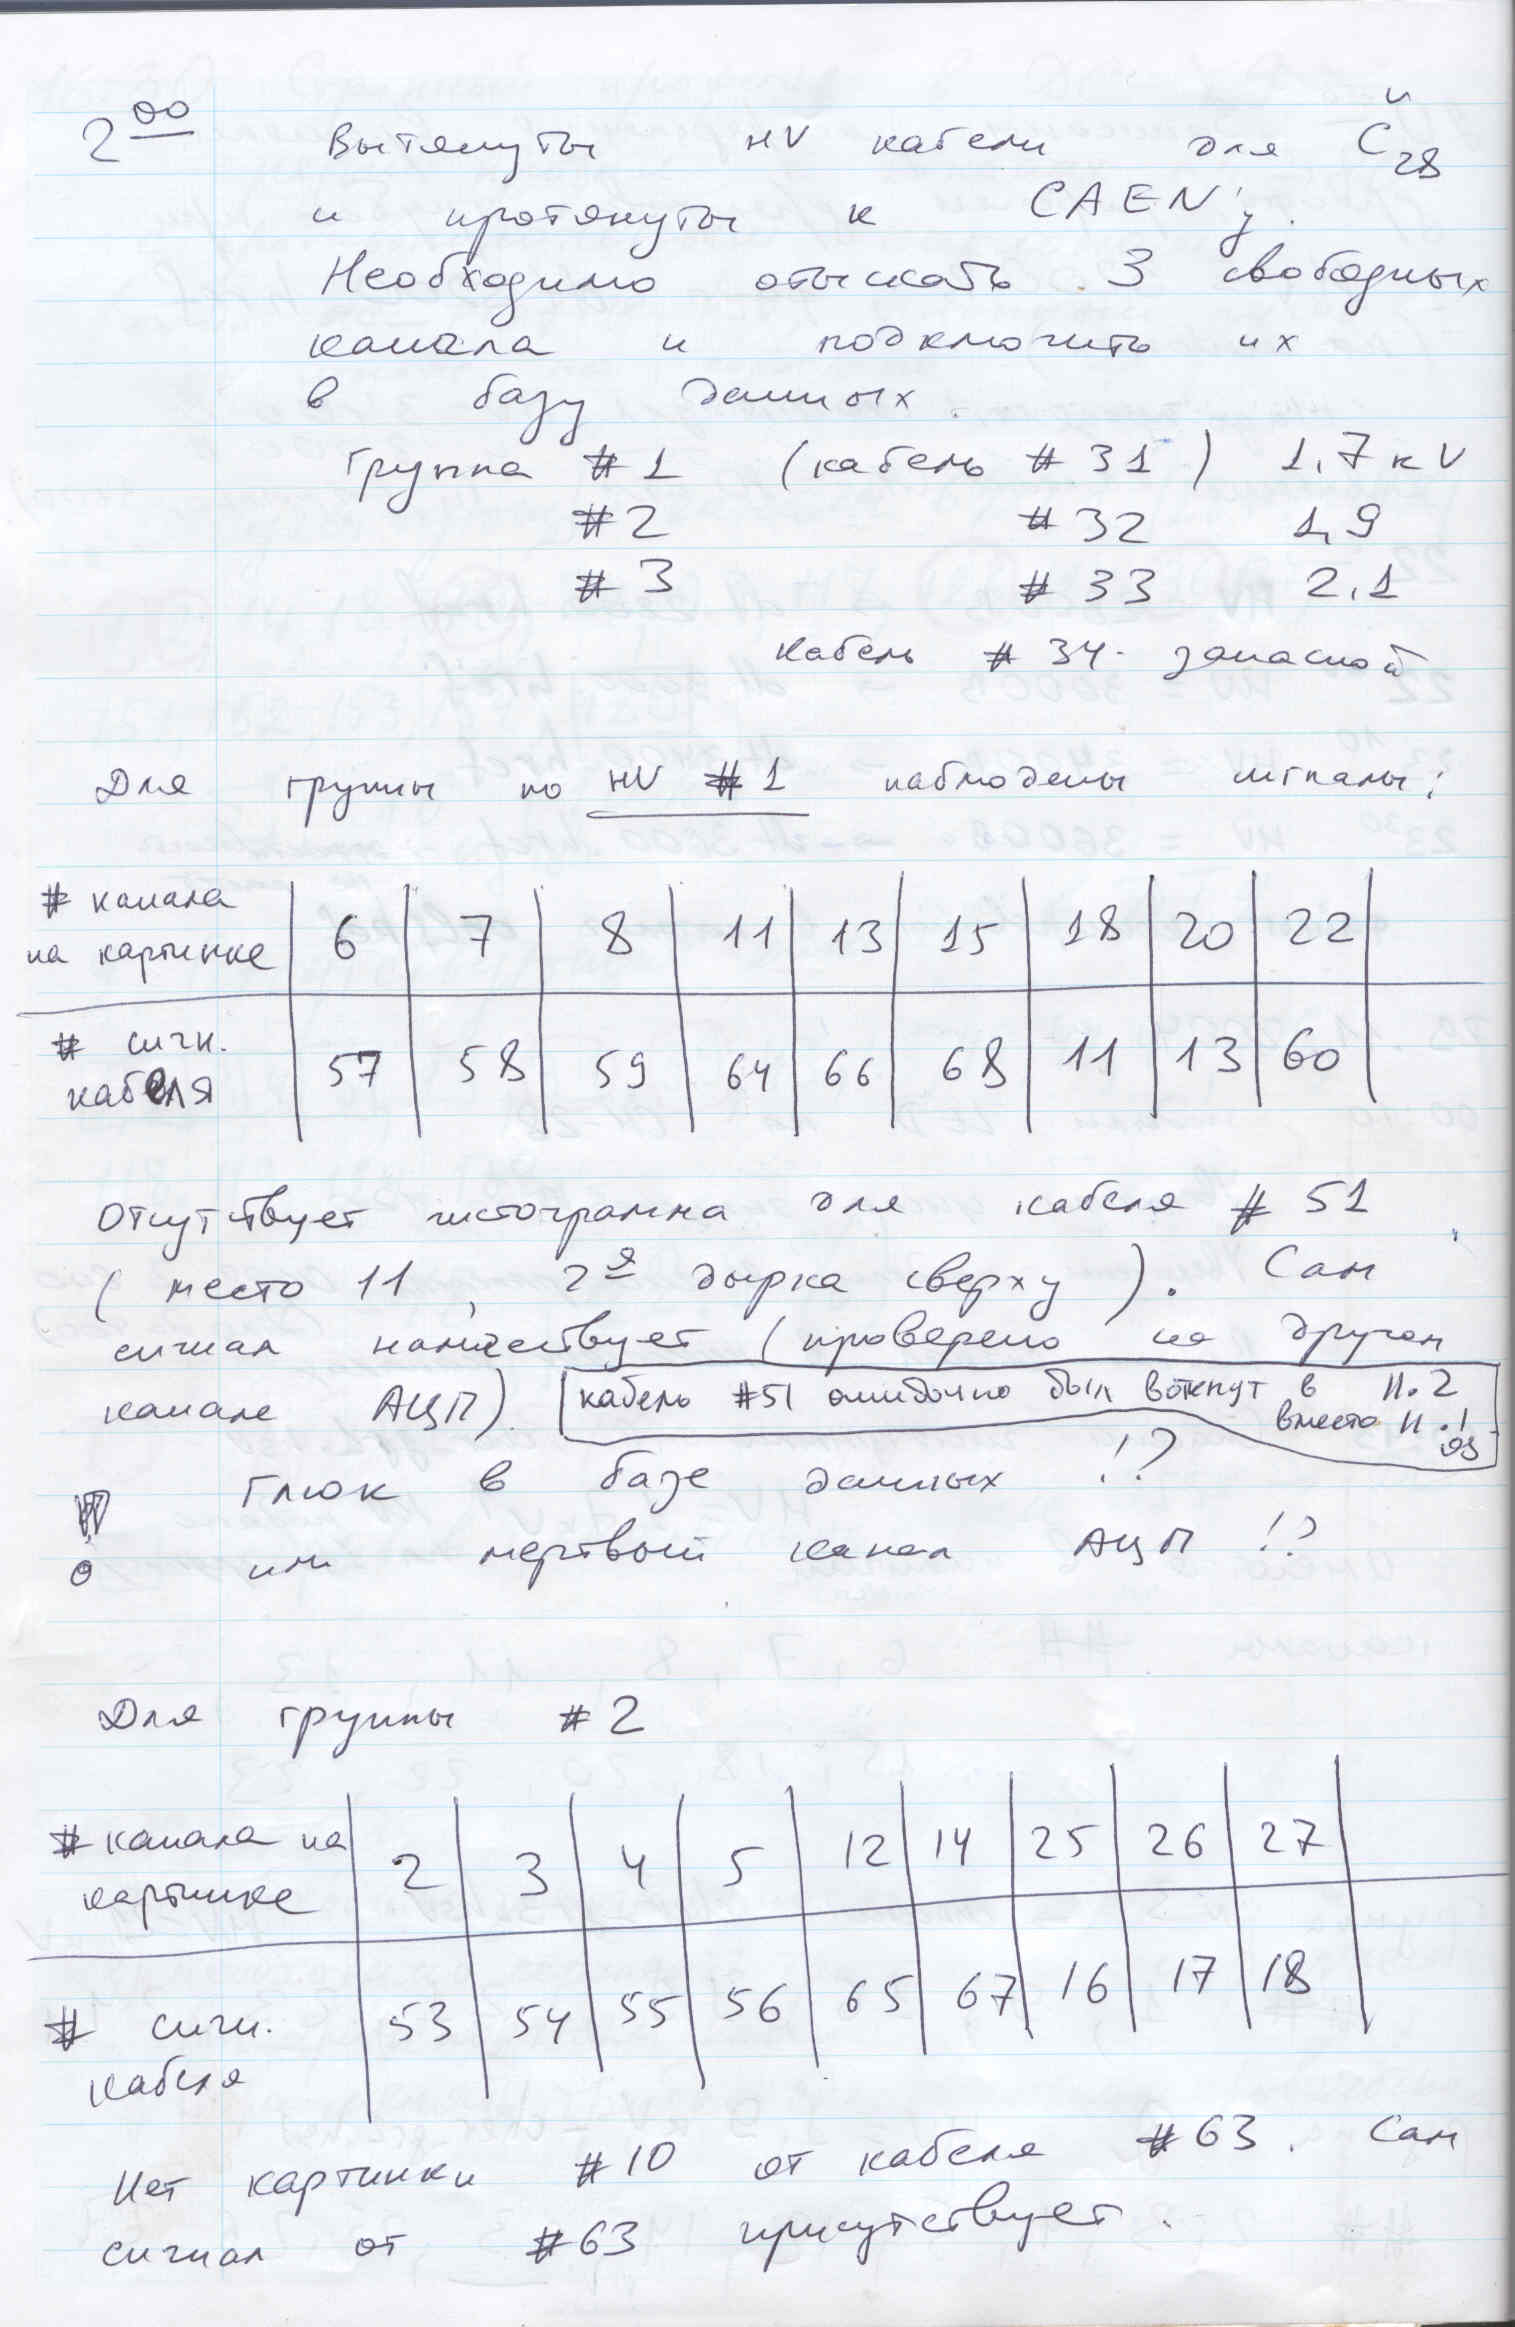 2⁰⁰ Вытянуты HV кабели для Č₂₈
и протянуты к CAEN'у.
Необходимо отыскать 3 свободных
канала и подключить их
в базу данных.
группа #1 (кабель #31) 1,7 кV
#2 #32 1,9
#3 #33 2,1
кабель #34 - запасной
Для группы по HV #1 наблюдены сигналы:
# канала
на картинке 6 7 8 11 13 15 18 20 22
# сигн.
кабеля 57 58 59 64 66 68 11 13 60
Отсутствует гистограмма для кабеля #51
(место 11, 2я дырка сверху). Сам
сигнал наличествует (проверено на другом
канале АЦП). кабель #51 ошибочно был воткнут в 11.2
вместо 11.1
Глюк в базе данных !?
или мертвый канал АЦП !?
Для группы #2
# канала на
картинке 2 3 4 5 12 14 25 26 27
# сигн.
кабеля 53 54 55 56 65 67 16 17 18
Нет картинки #10 от кабеля #63. Сам
сигнал от #63 присутствует.